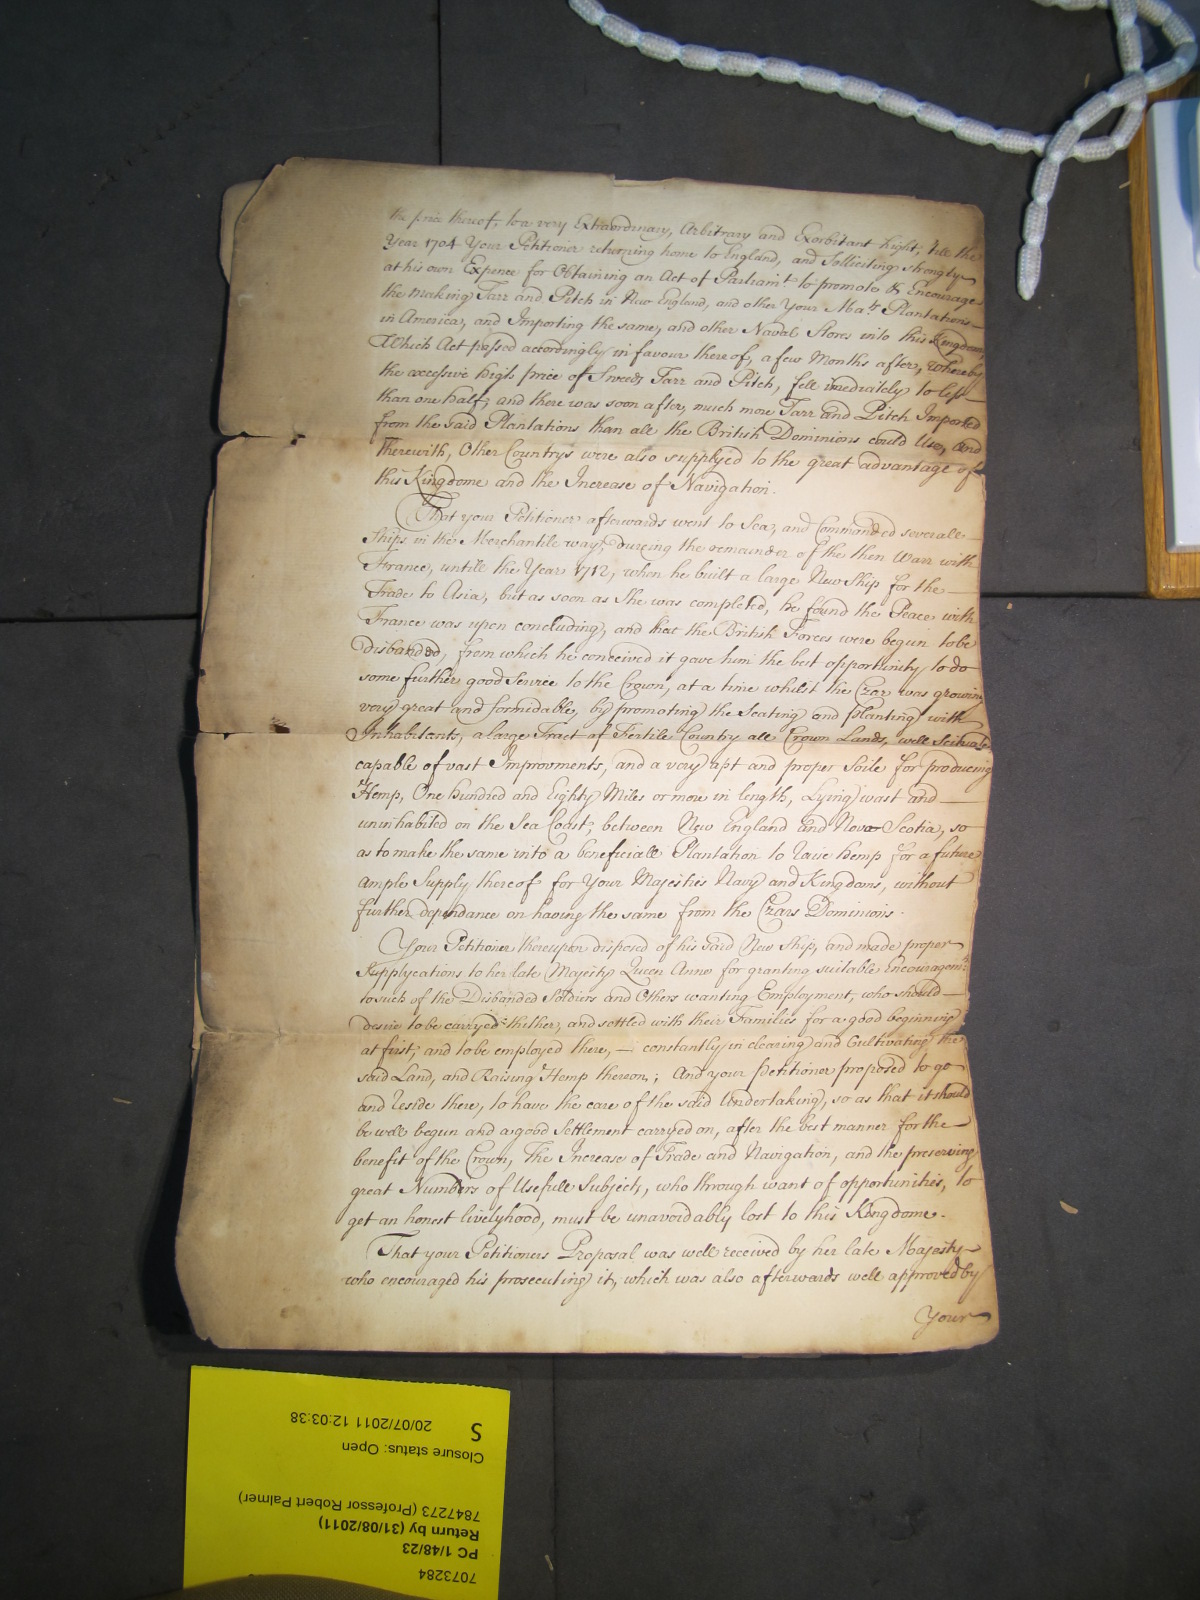 the price thereof, to a very Extraordinary, Arbitrary and Exorbitant hight, till the
Year 1704 Your Petitioner returning home to England, and Solliciting strongly
at his own Expence for Obtaining an Act of Parliamt. to promote & Encourage
the making Tarr and Pitch in New England, and other Your Maty's Plantations
in America, and Importing the same, and other Naval Stores into this Kingdom,
Which Act passed accordingly in favour thereof, a few Months after, whereby
the excessive high price of Sweeds Tarr and Pitch, fell imediately to less
than one half, and there was soon after, much more Tarr and Pitch Imported
from the said Plantations than all the British Dominions could Use, and
therewith, Other Countrys were also supplyed to the great advantage of
this Kingdome and the Increase of Navigation.
That your Petitioner afterwards went to Sea, and Commanded severale
Ships in the Merchantile way, dureing the remeinder of the then Warr with
France, untill the Year 1712, when he built a large New Ship for the
Trade to Asia, but as soon as She was compleated, he found the Peace with
France was upon concluding, and that the British Forces were begun to be
Disbanded, from which he conceived it gave him the best opportunity to do
some further good Service to the Crown, at a time whilst the Czar was growing
very great and formidable, by promoting the Seating and planting with
Inhabitents, a large Tract of Fertile Country all Crown Lands, well Scituate
capable of vast Improvments, and a very apt and proper Soile for producing
Hemp, One hundred and Eighty Miles or more in length, Lying wast and
uninhabited on the Sea Coast, between New England and Nova Scotia, so
as to make the same into a beneficiall Plantation to raise hemp for a future
ample Supply thereof for Your Majesties Navy and Kingdoms, without
further dependance on having the same from the Czars Dominions.
Your Petitioner thereupon disposed of his said New Ship, and made proper
Supplycations to her late Majesty Queen Anne for granting suitable Encouragemt.
to such of the Disbanded Soldiers and Others wanting Employment, who should
desire to be carryed thither, and settled with their Families for a good beginning
at first, and to be employed there, — constantly in clearing and Cultivating the
said Land, and Raising Hemp thereon; And your Petitioner proposed to go
and reside there, to have the care of the said Undertaking, so as that it should
be well begun and a good Settlement carryed on, after the best manner for the
benefit of the Crown, The Increase of Trade and Navigation, and the preserving
great Numbers of Usefull Subjects, who through want of opportunities, to
get an honest livelyhood, must be unavoidably lost to this Kingdome.
That your Petitioners Proposal was well received by her late Majesty
who encouraged his prosecuting it, which was also afterwards well approved by
Your
7073284
PC 1/48/23
Return by (31/08/2011)
7847273 (Professor Robert Palmer)
Closure status: Open
S
20/07/2011 12:03:38